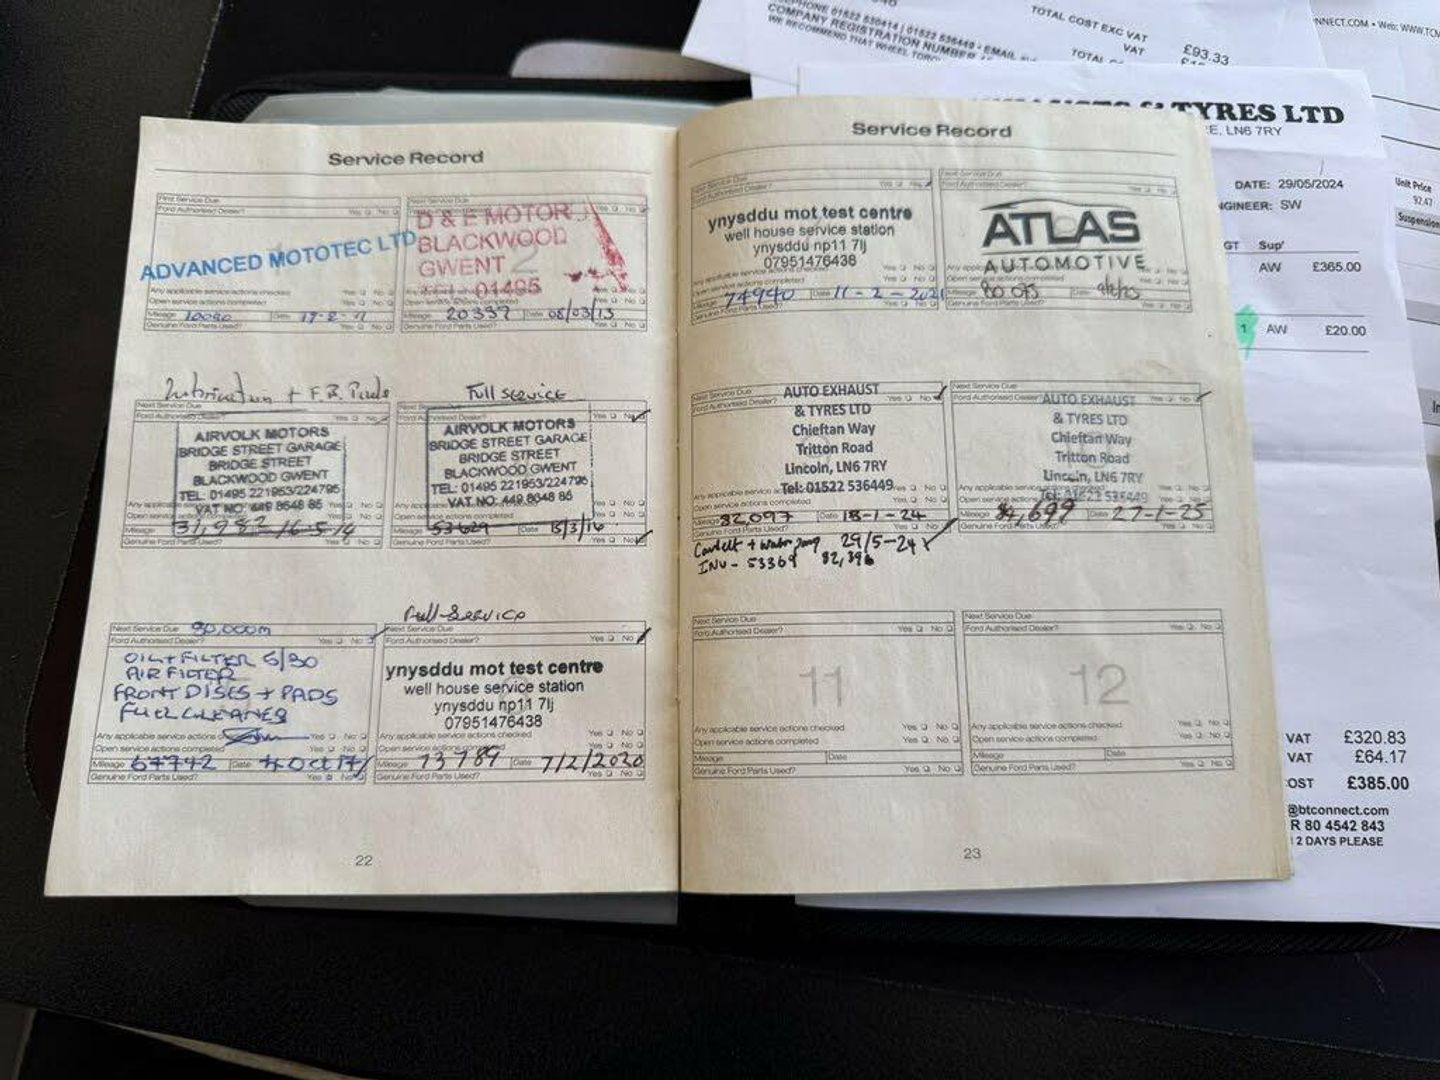 Service Record
First Service Due
Ford Authorised Dealer? Yes No
ADVANCED MOTOTEC LTD
Any applicable service actions checked
Open service actions completed Yes No
Mileage 10090 Date 17-2-11
Genuine Ford Parts Used? Yes No
Next Service Due
D & E MOTOR
BLACKWOOD
GWENT 2
01495
Mileage 20337 Date 08/03/13
Genuine Ford Parts Used? Yes No
Lubrication + F.B. Pads
Next Service Due
Ford Authorised Dealer? Yes No
AIRVOLK MOTORS
BRIDGE STREET GARAGE
BRIDGE STREET
BLACKWOOD GWENT
TEL: 01495 221953/224795
VAT NO: 449 8648 86
Mileage 31,982 16-5-14
Genuine Ford Parts Used? Yes No
Full Service
AIRVOLK MOTORS
BRIDGE STREET GARAGE
BRIDGE STREET
BLACKWOOD GWENT
TEL: 01495 221953/224795
VAT NO: 449 8648 86
Mileage 53629 Date 15/3/16
Genuine Ford Parts Used? Yes No
Next Service Due 80,000m
Ford Authorised Dealer? Yes No
OIL+FILTER 5/30
AIR FILTER
FRONT DISCS + PADS
FUEL CLEANER
Any applicable service actions Yes No
Open service actions completed Yes No
Mileage 67742 Date Oct 17
Genuine Ford Parts Used? Yes No
Full-Service
Next Service Due
Ford Authorised Dealer? Yes No
ynysddu mot test centre
well house service station
ynysddu np11 7lj
07951476438
Open service actions completed Yes No
Mileage 73789 Date 7/2/2020
Genuine Ford Parts Used? Yes No
22
Service Record
Next Service Due
Ford Authorised Dealer? Yes No
ynysddu mot test centre
well house service station
ynysddu np11 7lj
07951476438
Any applicable service actions checked Yes No
Open service actions completed Yes No
Mileage 74940 Date 11-2-2021
Genuine Ford Parts Used? Yes No
Next Service Due
Ford Authorised Dealer? Yes No
ATLAS
AUTOMOTIVE
Open service actions completed Yes No
Mileage 80075 Date
Genuine Ford Parts Used? Yes No
Next Service Due
Ford Authorised Dealer? Yes No
AUTO EXHAUST
& TYRES LTD
Chieftan Way
Tritton Road
Lincoln, LN6 7RY
Tel: 01522 536449
Open service actions completed Yes No
Mileage 82,097 Date 18-1-24
Genuine Ford Parts Used? Yes No
Cambelt + Water pump 29/5-24
INV - 53369 82,396
Next Service Due
Ford Authorised Dealer? Yes No
AUTO EXHAUST
& TYRES LTD
Chieftan Way
Tritton Road
Lincoln, LN6 7RY
Tel: 01522 536449
Open service actions completed Yes No
Mileage 84,699 Date 27-1-25
Genuine Ford Parts Used? Yes No
Next Service Due
Ford Authorised Dealer? Yes No
11
Any applicable service actions checked Yes No
Open service actions completed Yes No
Mileage Date
Genuine Ford Parts Used? Yes No
Next Service Due
Ford Authorised Dealer? Yes No
12
Any applicable service actions checked Yes No
Open service actions completed Yes No
Mileage Date
Genuine Ford Parts Used? Yes No
23
01522 530414 | 01522 536449 - EMAIL
COMPANY REGISTRATION NUMBER
WE RECOMMEND THAT WHEEL
TOTAL COST EXC VAT £93.33
VAT
NNECT.COM • Web: WWW.TCM
& TYRES LTD
E, LN6 7RY
DATE: 29/05/2024
NGINEER: SW
GT Sup'
AW £365.00
1 AW £20.00
VAT £320.83
VAT £64.17
OST £385.00
@btconnect.com
R 80 4542 843
2 DAYS PLEASE
Unit Price
92.47
Suspension